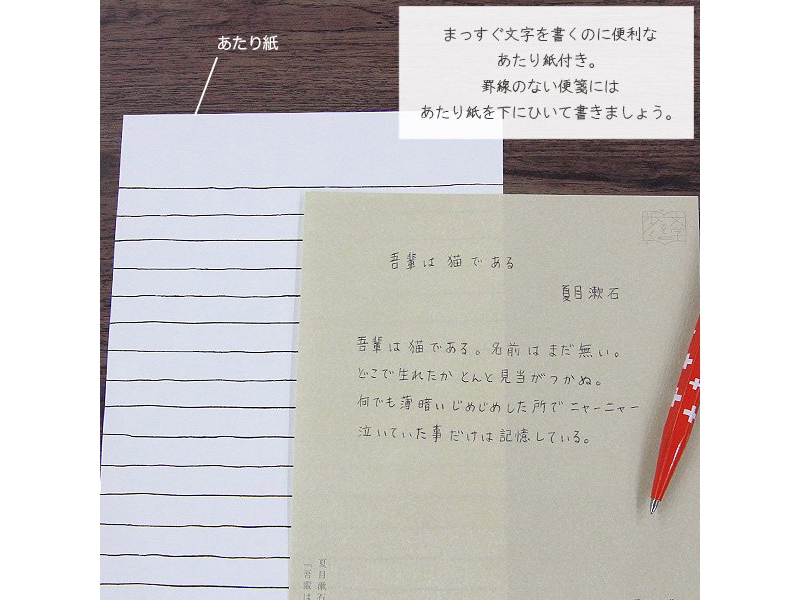 あたり紙
まっすぐ文字を書くのに便利な
あたり紙付き。
罫線のない便箋には
あたり紙を下にひいて書きましょう。
吾輩は猫である
夏目漱石
吾輩は猫である。名前はまだ無い。
どこで生れたかとんと見当がつかぬ。
何でも薄暗いじめじめした所でニャーニャー
泣いていた事だけは記憶している。
夏目漱石
「吾輩は